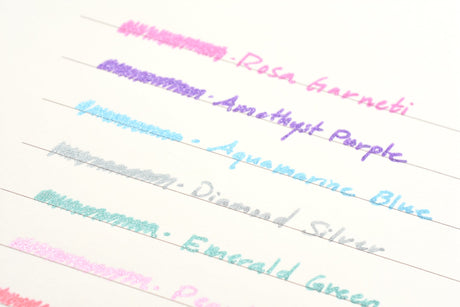 Rosa Garneti
Amethyst Purple
Aquamarine Blue
Diamond Silver
Emerald Green